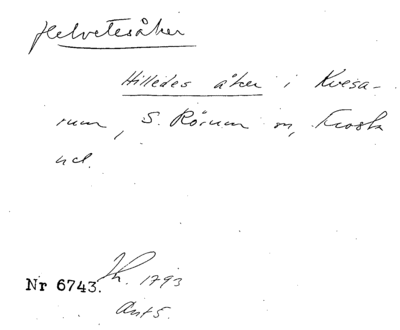 Helvetesåker
Hilledes åker i Kvesa-
rum, S. Rörum sn, Frosta
hd.
Nr 6743. Lh. 1793
Akt 5.